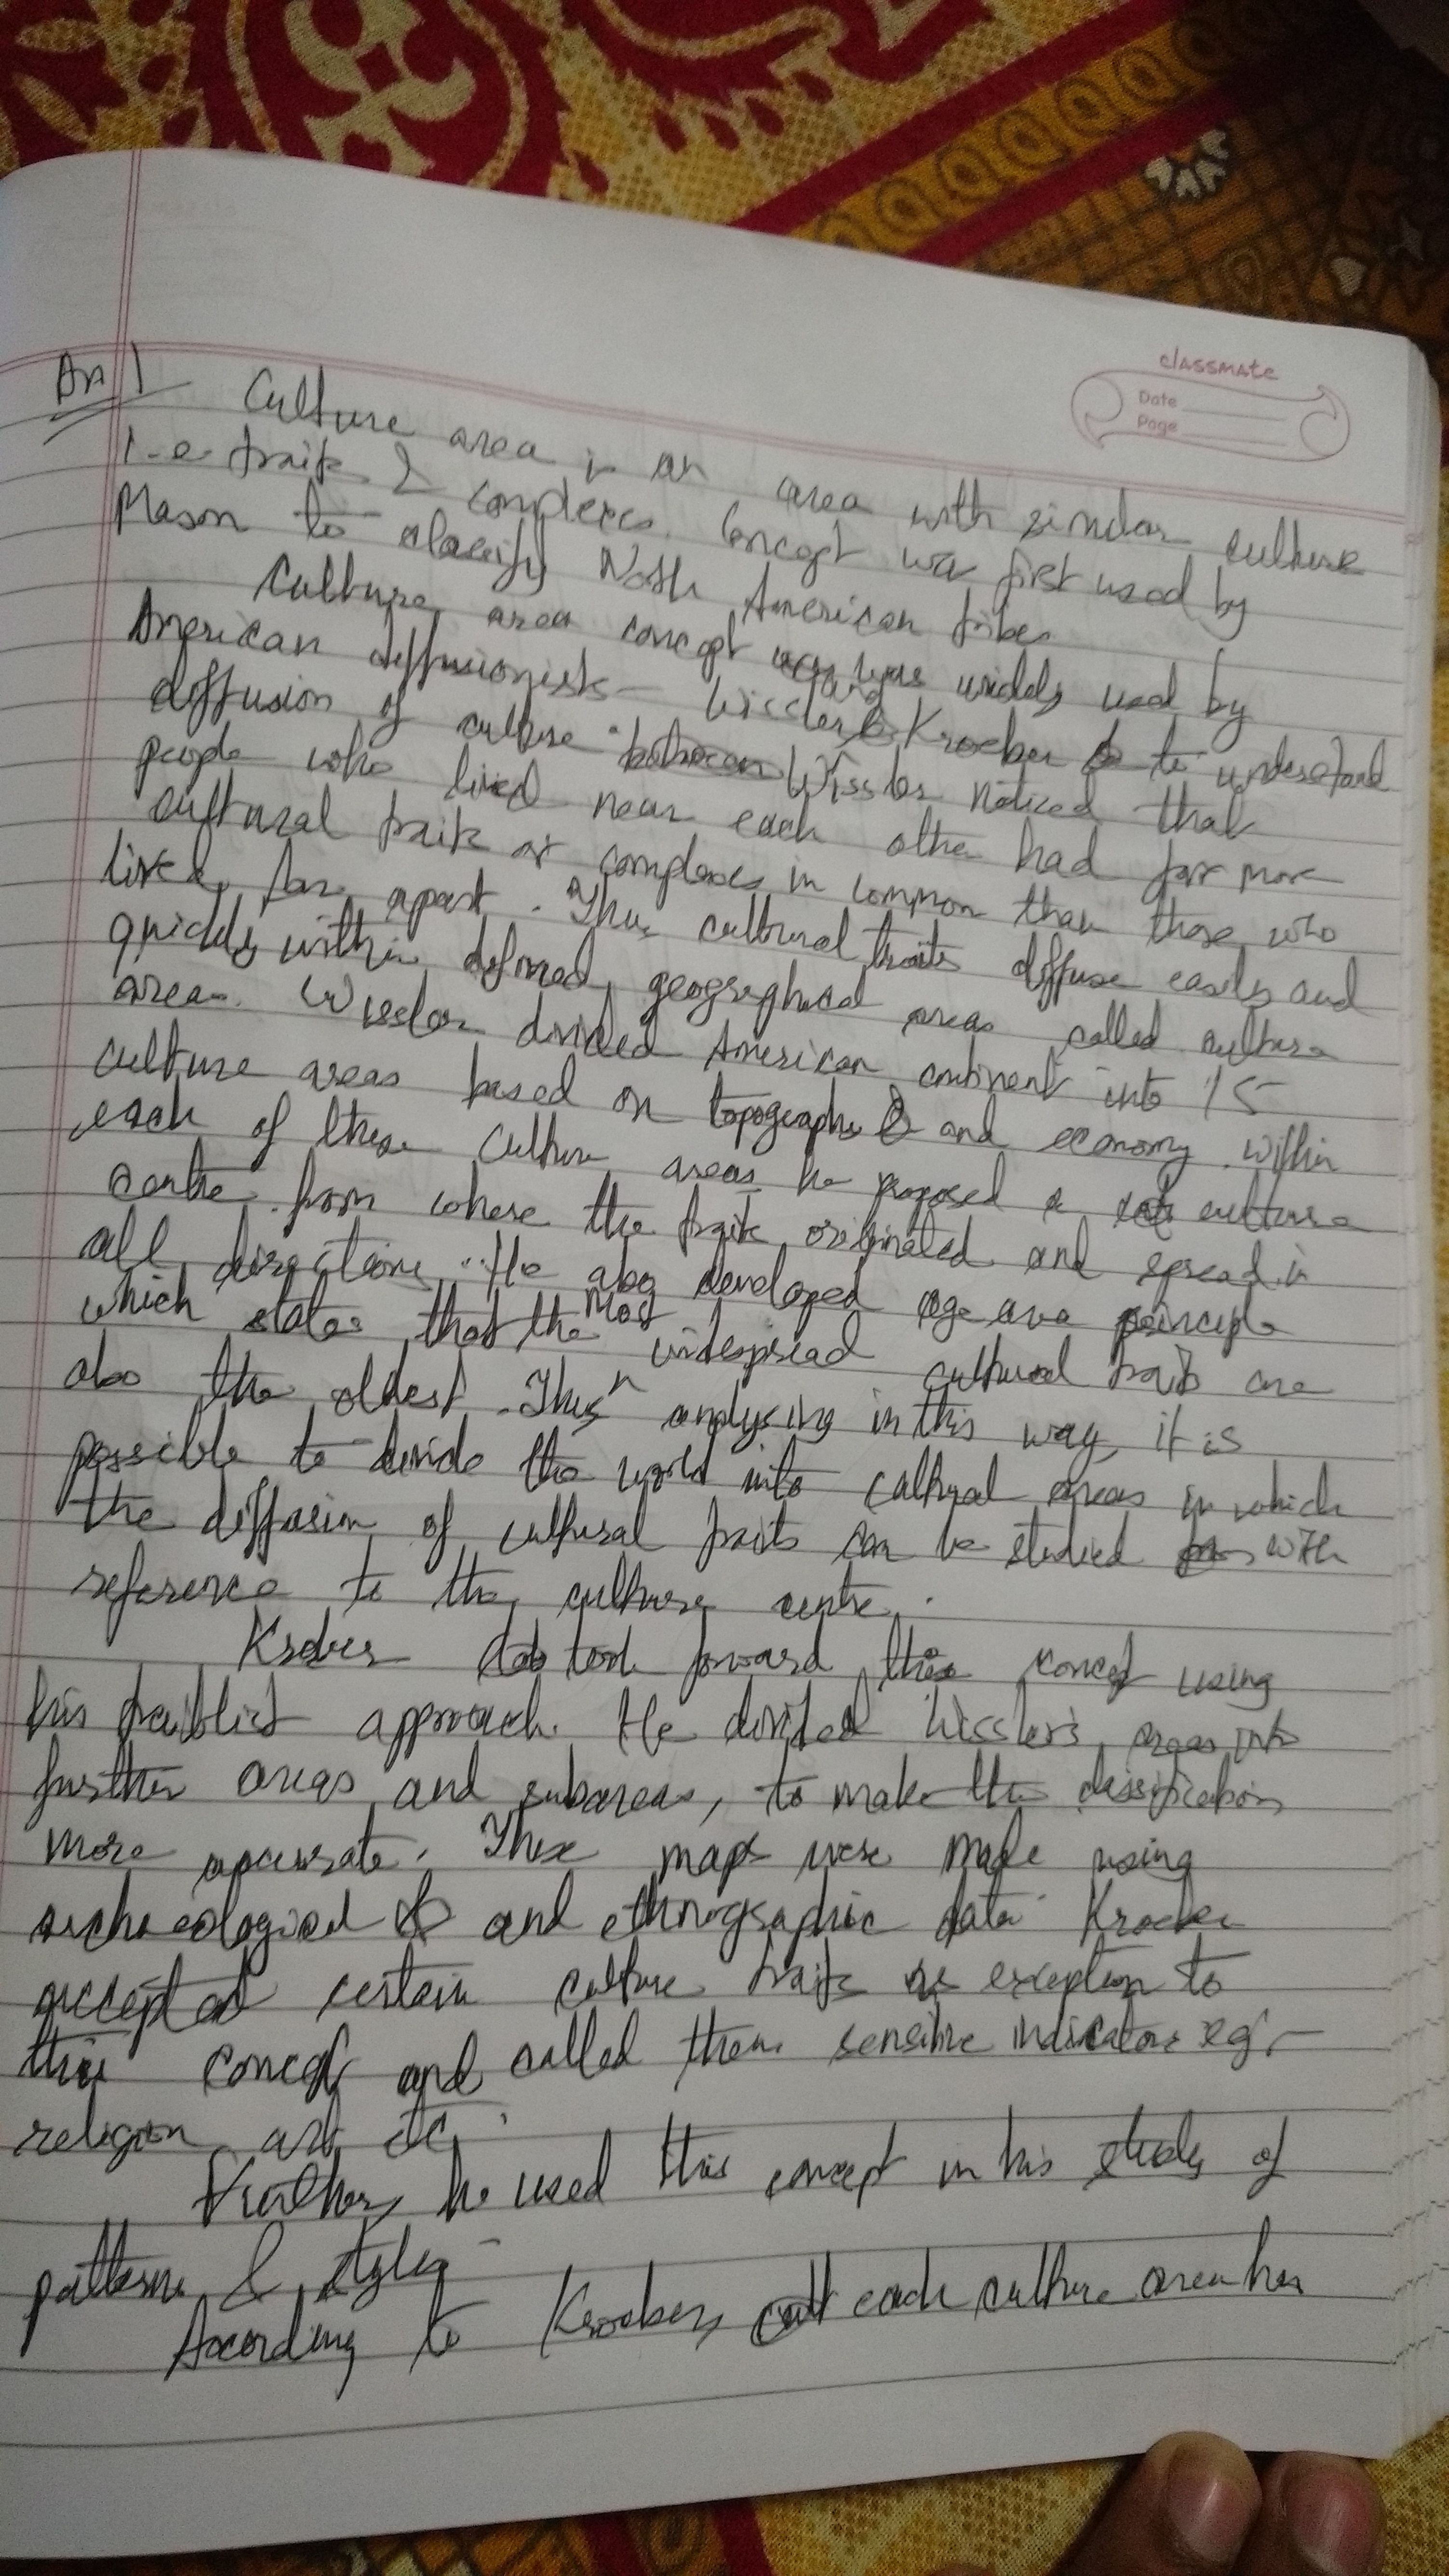 classmate
Date
Page
An 1
Culture area is an area with similar culture
i.e traits & complexes. Concept was first used by
Mason to classify North American tribes
Culture area concept was widely used by
American diffusionists - Wissler and Kroeber to understand
diffusion of culture. Wissler noticed that
people who lived near each other had far more
cultural traits or complexes in common than those who
lived far apart. Thus cultural traits diffuse easily and
quickly within defined geographical areas called culture
areas. Wissler divided American continent into 15
culture areas based on topography and economy. Within
each of these culture areas he proposed a culture
centre from where the traits originated and spread in
all directions. He also developed age area principle
which states that the most widespread cultural traits are
also the oldest. Thus analysing in this way, it is
possible to divide the world into cultural areas in which
the diffusion of cultural traits can be studied with
reference to the culture centre.
Kroeber took forward this concept using
his traitlist approach. He divided Wissler's areas into
further areas and subareas, to make the classification
more accurate. These maps were made using
archaeological and ethnographic data. Kroeber
accepted certain culture traits as exception to
this concept and called them sensitive indicators eg:-
religion, art, etc.
Further, he used this concept in his study of
patterns & styles
According to Kroeber, each culture area has